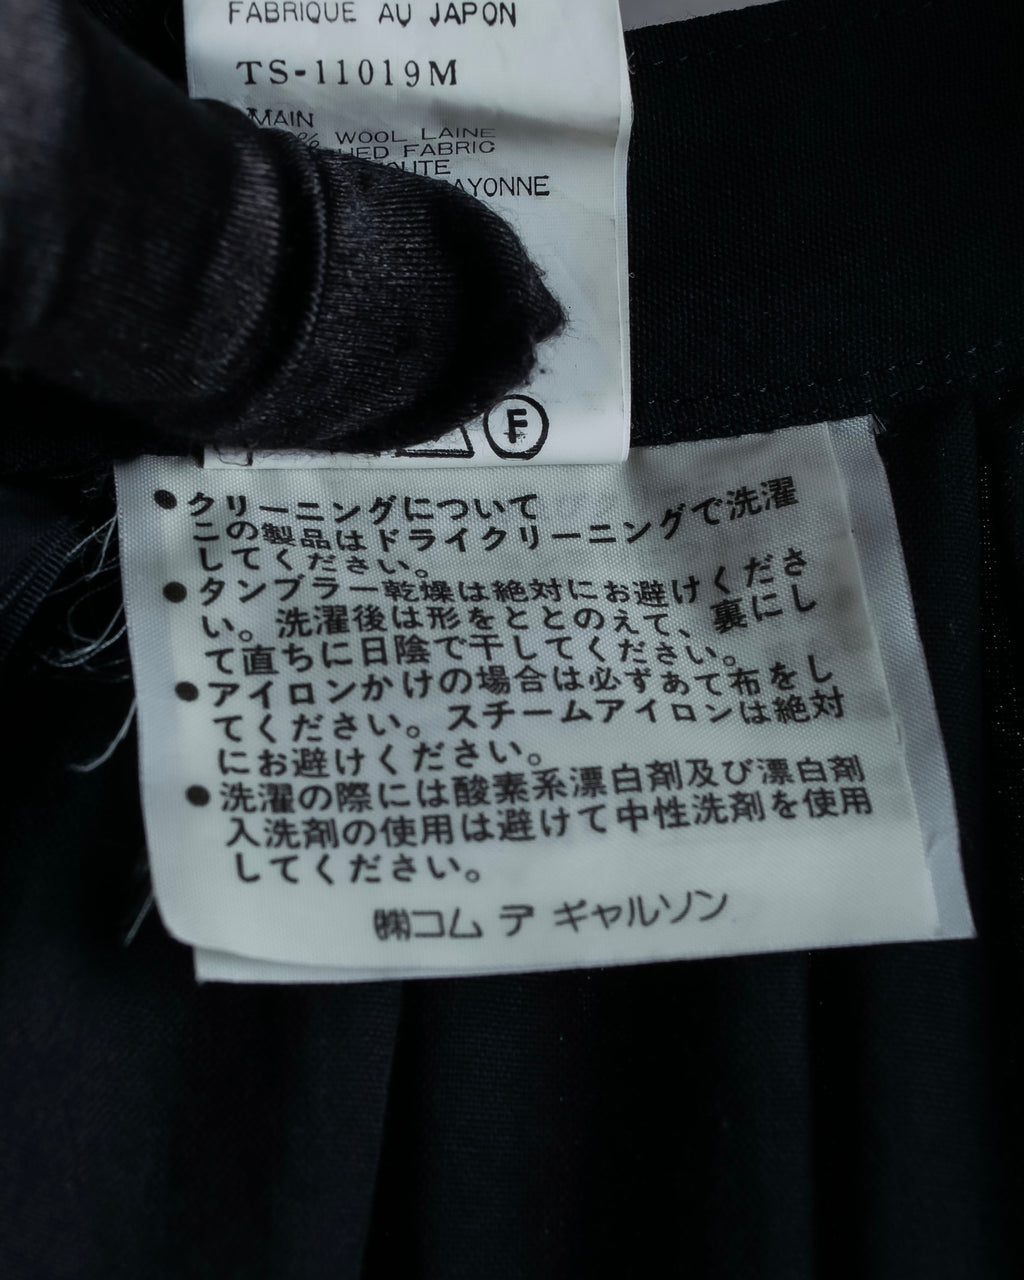 FABRIQUE AU JAPON
TS-11019M
MAIN
% WOOL LAINE
HED FABRIC
OUTE
AYONNE
F
●クリーニングについて
この製品はドライクリーニングで洗濯
してください。
●タンブラー乾燥は絶対にお避けくださ
い。洗濯後は形をととのえて、裏にし
て直ちに日陰で干してください。
●アイロンかけの場合は必ずあて布をし
てください。スチームアイロンは絶対
にお避けください。
●洗濯の際には酸素系漂白剤及び漂白剤
入洗剤の使用は避けて中性洗剤を使用
してください。
㈱コム デ ギャルソン